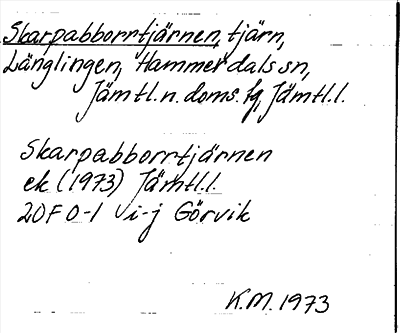 Skarpabborrtjärnen, tjärn,
Länglingen, Hammerdals sn,
Jämtl.n.doms.fg, Jämtl.l.
Skarpabborrtjärnen
ek (1973) Jämtl.l.
20F 0-1 i-j Görvik
K.M. 1973